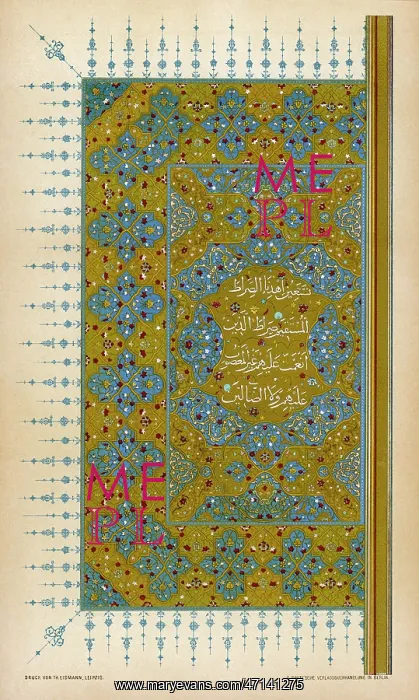 نستعين اهدنا الصراط
المستقيم صراط الذين
أنعمت عليهم غير المغضوب
عليهم ولا الضالين
ME
PL
ME
PL
DRUCK VON TH. EISMANN, LEIPZIG.
VERLAGSBUCHHANDLUNG IN BERLIN.
www.maryevans.com/47141275